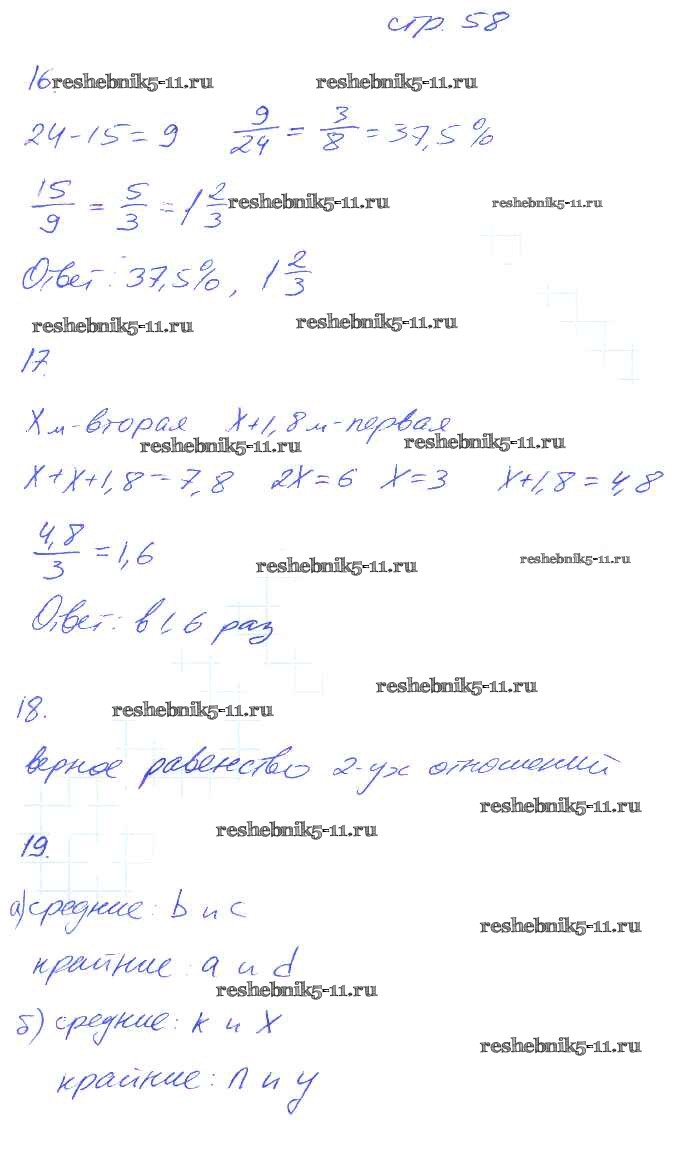 стр. 58
16. reshebnik5-11.ru reshebnik5-11.ru
24-15=9 9/24 = 3/8 = 37,5%
15/9 = 5/3 = 1 2/3 reshebnik5-11.ru reshebnik5-11.ru
Ответ: 37,5%, 1 2/3
reshebnik5-11.ru reshebnik5-11.ru
17.
Xм-вторая X+1,8м-первая
reshebnik5-11.ru reshebnik5-11.ru
X+X+1,8=7,8 2X=6 X=3 X+1,8=4,8
4,8/3 =1,6
reshebnik5-11.ru reshebnik5-11.ru
Ответ: в 1,6 раз
reshebnik5-11.ru
18. reshebnik5-11.ru
верное равенство 2-ух отношений
reshebnik5-11.ru
19. reshebnik5-11.ru
а) средние: b и c
reshebnik5-11.ru
крайние: a и d
reshebnik5-11.ru
б) средние: k и X
reshebnik5-11.ru
крайние: n и y